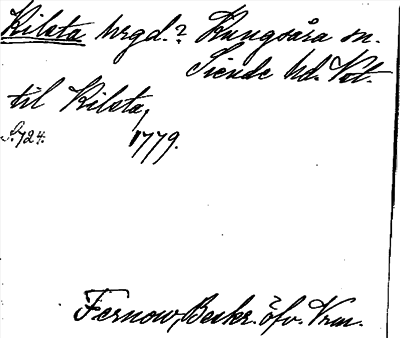 Kilsta hrgd.? Kungsåra sn.
Siende hd. Vst.
till Kilsta,
S. 724. 1779.
Fernow, Beskr. öfv. Vrm.